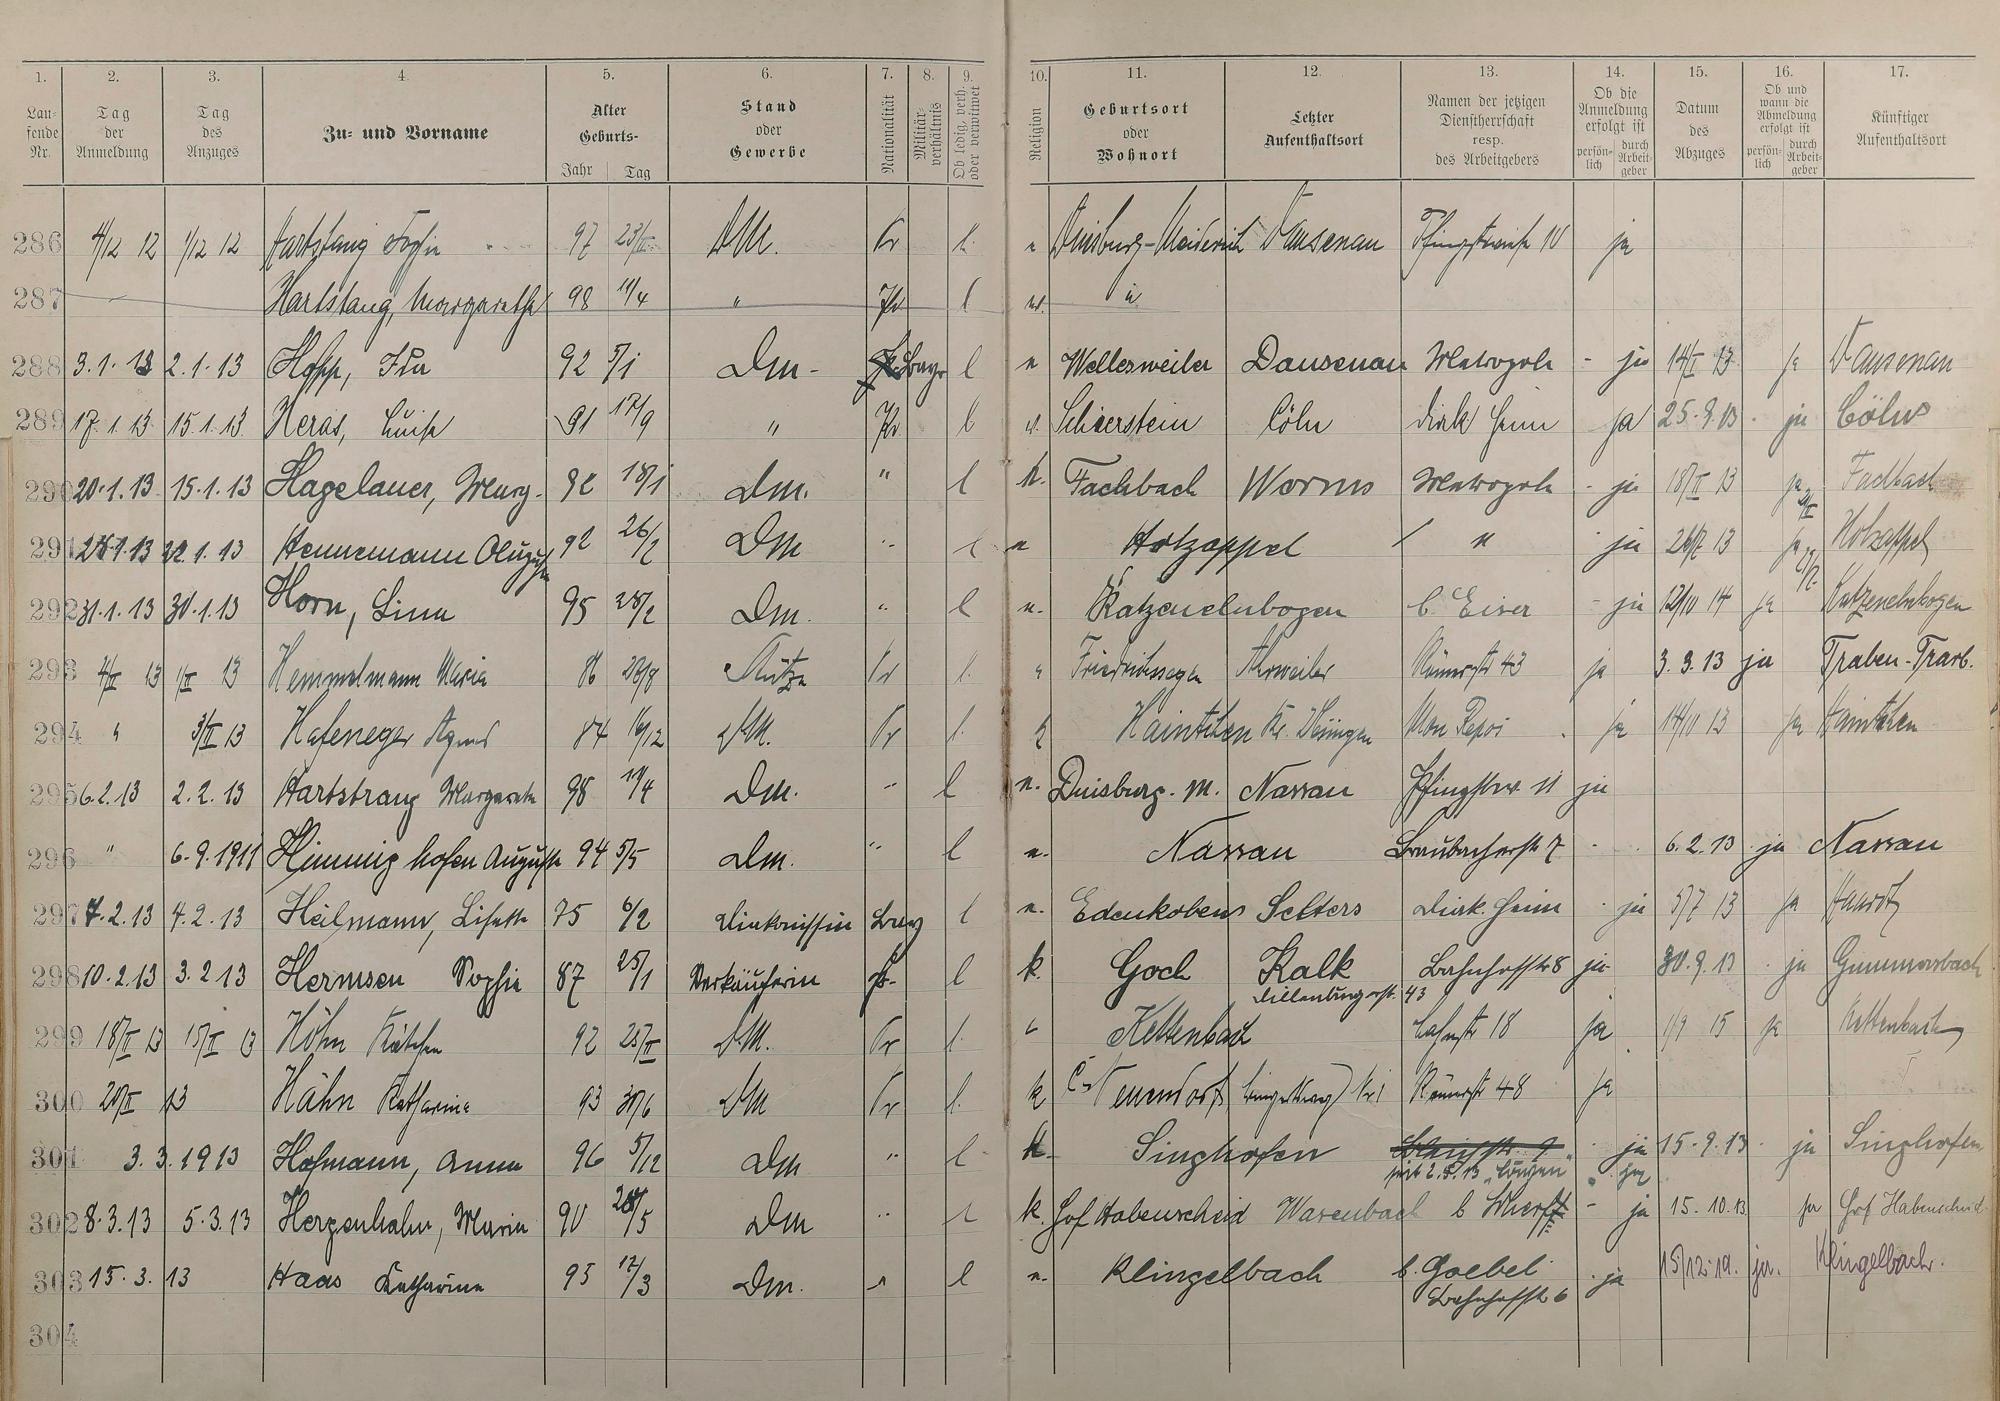 1. 2. 3. 4. 5. 6. 7. 8. 9. 10. 11. 12. 13. 14. 15. 16. 17.
Lau-fende Nr. | Tag der Anmeldung | Tag des Anzuges | Zu- und Vorname | Alter Geburts- Jahr Tag | Stand oder Gewerbe | Nationalität | Militär-verhältnis | Ob ledig, verh. oder verwitwet | Religion | Geburtsort oder Wohnort | Letzter Aufenthaltsort | Namen der jetzigen Dienstherrschaft resp. des Arbeitgebers | Ob die Anmeldung erfolgt ist persön-lich durch Arbeit-geber | Datum des Abzuges | Ob und wann die Abmeldung erfolgt ist persön-lich durch Arbeit-geber | Künftiger Aufenthaltsort
286 4/12 12 1/12 12 Hartstang Sophie 97 DM. Pr l. Duisburg-Meiderich Dausenau ja
287 Hartstang, Margarethe 98 11/4 " Pr l "
288 3.1.13 2.1.13 Hopp, Ida 92 5/1 Dm - Bayr l Wellesweiler Dausenau Metropole - ja 14/I 13 ja Dausenau
289 17.1.13 15.1.13 Heras, Luise 91 17/9 " Pr l Schierstein Cöln Diak Heim ja 25.9.13 ja Cöln
290 20.1.13 15.1.13 Hagelauer, Marg. 92 18/1 Dm. " l k. Fachbach Worms Metropole - ja 18/II 13 ja Fachbach
291 13 1.13 Hennemann Auguste 92 26/2 Dm " l Holzappel / " ja 13 ja Holzappel
292 31.1.13 30.1.13 Horn, Lina 95 28/2 Dm. " l Katzenelnbogen b. Eiser - ja 14 ja Katzenelnbogen
293 4/II 13 1/II 13 Hemmelmann Maria 86 Stütze Pr l. Friedrichssegen Ahrweiler Römerstr 43 ja 3.3.13 ja Traben-Trarb.
294 " 3/II 13 Hafeneger Agnes 84 16/12 DM. Pr l. Haintchen Kr. Usingen Mon Repos ja 13 ja Haintchen
295 6.2.13 2.2.13 Hartstrang Margarete 98 11/4 Dm. " l Duisburg. M. Nassau Pfingstwe 11 ja
296 " 6.9.1911 Himmighofen Auguste 94 5/5 Dm. " l Nassau Braubacherstr 7 6.2.13 ja Nassau
297 7.2.13 4.2.13 Heilmann, Lisette 75 6/2 Diakonissin Bay l Edenkoben Selters Diak. Heim ja 5/7 13 ja Haardt
298 10.2.13 3.2.13 Hermsen Sophie 87 25/1 Verkäuferin Pr. l k. Goch Kalk Bahnhofstr 8 ja 30.9.13 ja Gummersbach
Dillenburgerstr. 43
299 18/II 13 15/II 13 Höhn Kätchen 92 25/II DM. Pr l. Kettenbach Lahnstr 18 ja 1/9 15 ja Kettenbach
300 20/II 13 Hahn Katharina 93 30/6 DM Pr l. k Neuendorf Römerstr 48 ja
301 3.3.1913 Hofmann, Anna 96 5/12 Dm " l k. Singhofen ja 15.9.13 ja Singhofen
seit 2.5.13 "Löwen" ja
302 8.3.13 5.3.13 Herzenhahn, Maria 90 28/5 Dm " l k. Hof Habenscheid Wasenbach b - ja 15.10.13 ja Hof Habenscheid
303 15.3.13 Haas Katharina 95 17/3 Dm. " l Klingelbach b. Goebel ja 15/12.19. ja. Klingelbach.
Bahnhofstr 6
304